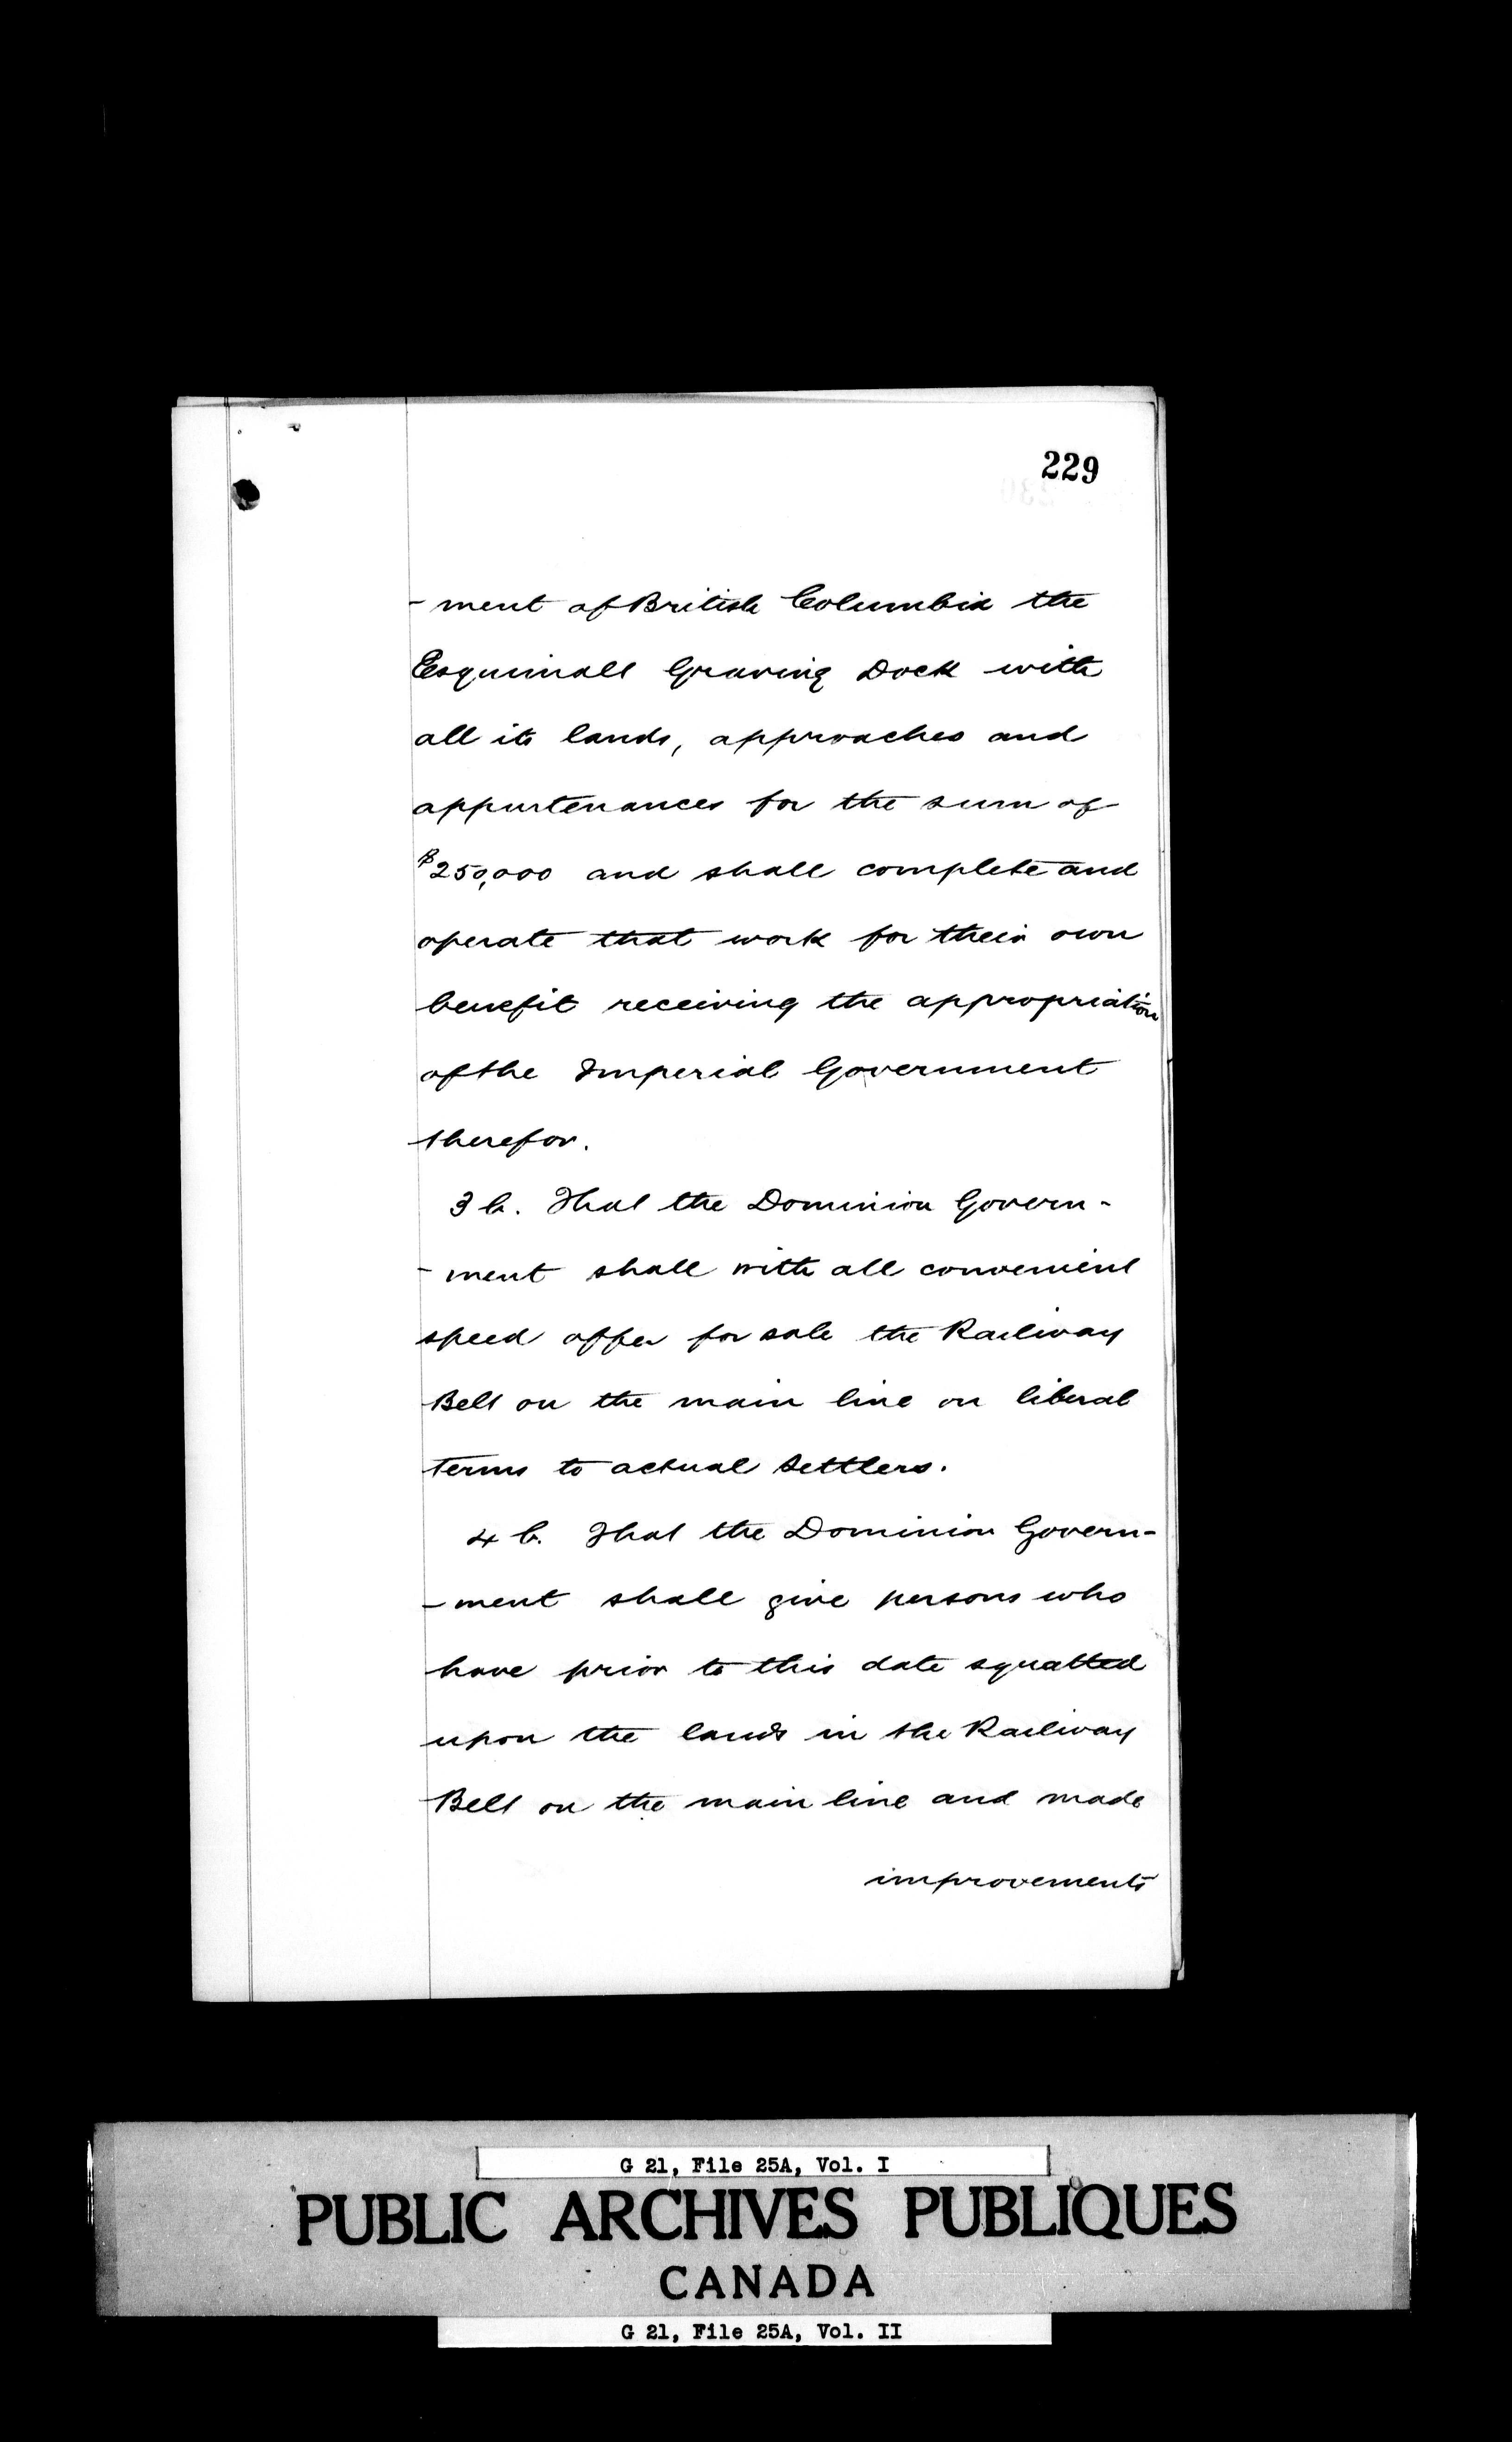 229
- ment of British Columbia the
Esquimalt Graving Dock with
all its lands, approaches and
appurtenances for the sum of
$250,000 and shall complete and
operate that work for their own
benefit receiving the appropriation
of the Imperial Government
therefor.
3 b. That the Dominion Govern-
- ment shall with all convenient
speed offer for sale the Railway
Belt on the main line on liberal
terms to actual settlers.
4 b. That the Dominion Govern-
- ment shall give persons who
have prior to this date squatted
upon the lands in the Railway
Belt on the main line and made
improvements
G 21, File 25A, Vol. I
PUBLIC ARCHIVES PUBLIQUES
CANADA
G 21, File 25A, Vol. II